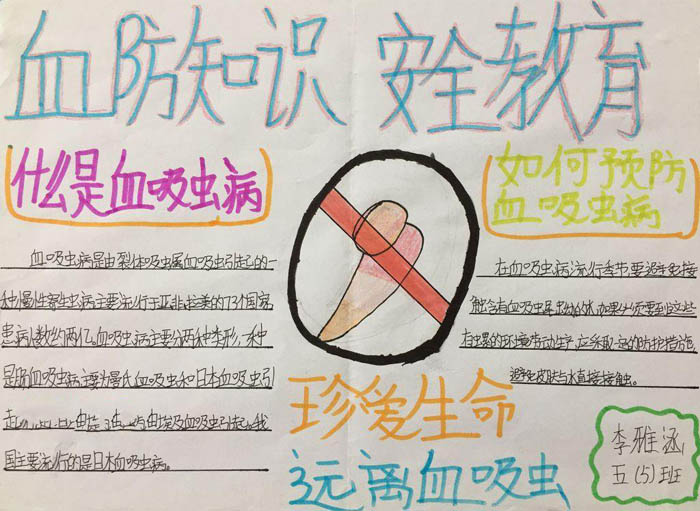 血防知识 安全教育
什么是血吸虫病
血吸虫病是由裂体吸虫属血吸虫引起的一
种慢性寄生虫病主要流行于亚非拉美的73个国家
患病人数约两亿。血吸虫病主要分两种类形,一种
是肠血吸虫病主要为曼氏血吸虫和日本血吸虫引
起 由埃及血吸虫引起。我
国主要流行的是日本血吸虫病。
如何预防
血吸虫病
在血吸虫病流行季节要避免接
触含有血吸虫尾蚴的水,如果必须要到这些
的环境劳动生产,应采取一定的防护措施,
避免皮肤与水直接接触。
珍爱生命
远离血吸虫
李雅涵
五(5)班